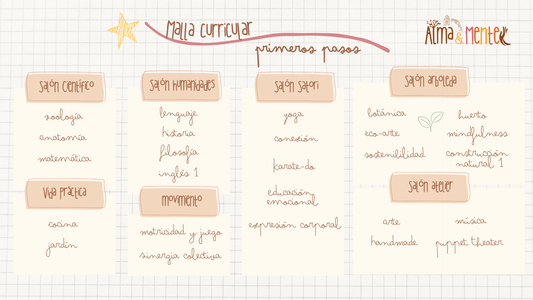 Malla curricular
primeros pasos
Alma & Mente
Salón Científico
zoología
anatomía
matemática
Vida práctica
cocina
jardín
Salón Humanidades
lenguaje
historia
filosofía
inglés 1
Movimiento
motricidad y juego
sinergia colectiva
Salón Satori
yoga
conexión
karate-do
educación
emocional
expresión corporal
Salón Arboleda
botánica
eco-arte
sostenibilidad
huerto
mindfulness
construcción
natural 1
Salón Atelier
arte
handmade
música
puppet theater